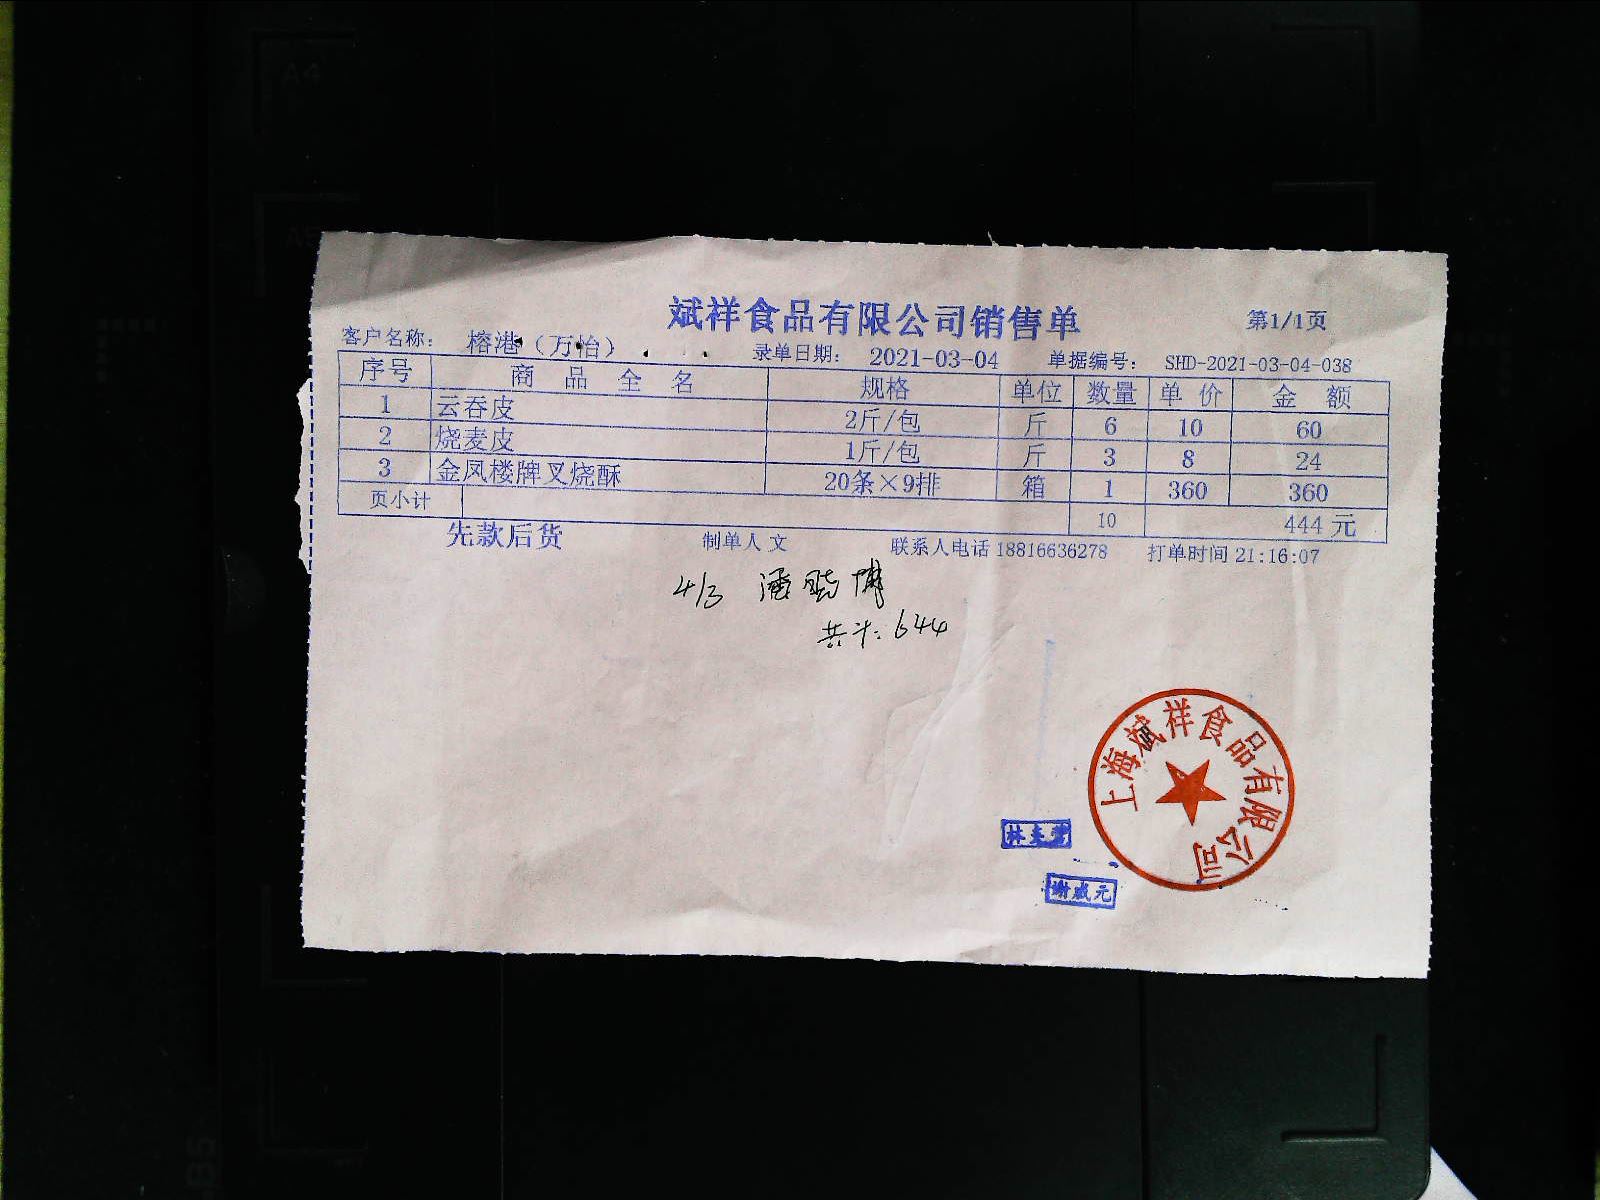 斌祥食品有限公司销售单
第1/1页
客户名称： 榕港（万怡） 录单日期： 2021-03-04 单据编号： SHD-2021-03-04-038
序号 商品全名 规格 单位 数量 单价 金额
1 云吞皮 2斤/包 斤 6 10 60
2 烧麦皮 1斤/包 斤 3 8 24
3 金凤楼牌叉烧酥 20条×9排 箱 1 360 360
页小计 10 444 元
先款后货 制单人 文 联系人电话 18816636278 打单时间 21:16:07
4/3 潘
共计: 644
上海斌祥食品有限公司
林
谢威元
A4
A5
B5